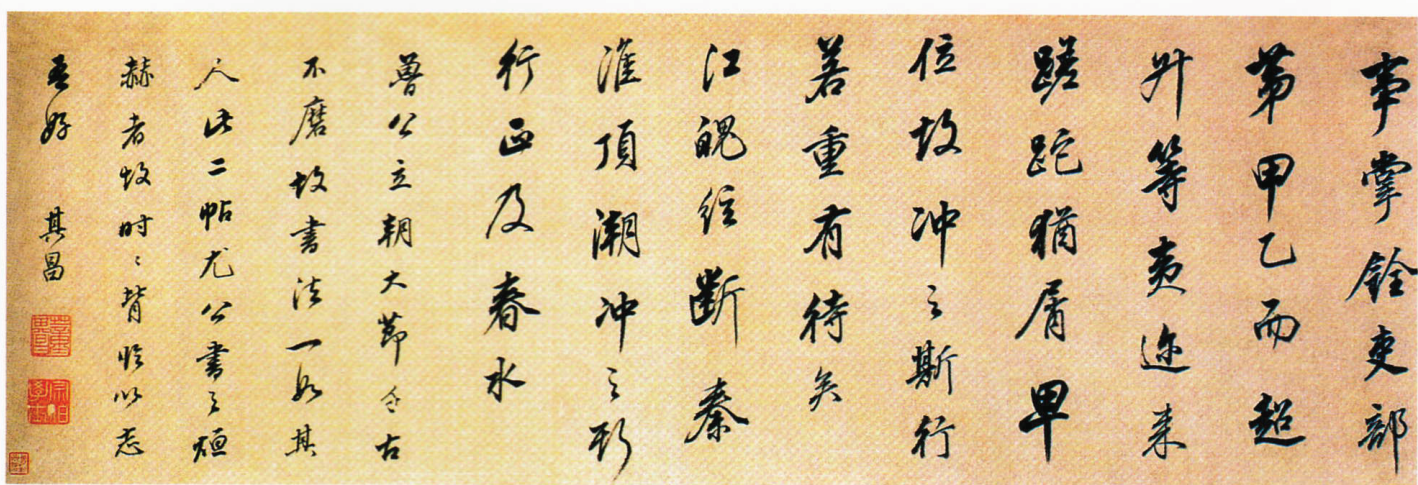 事掌銓吏部
第甲乙而超
升等夷迹来
蹉跎猶屑卑
位故冲之斯行
若重有待矣
江魄經斷秦
淮頂潮冲之斯
行正及春水
魯公立朝大節千古
不磨故書法一如其
人此二帖尤公書之烜
赫者故时〻背臨以志
吾好 其昌